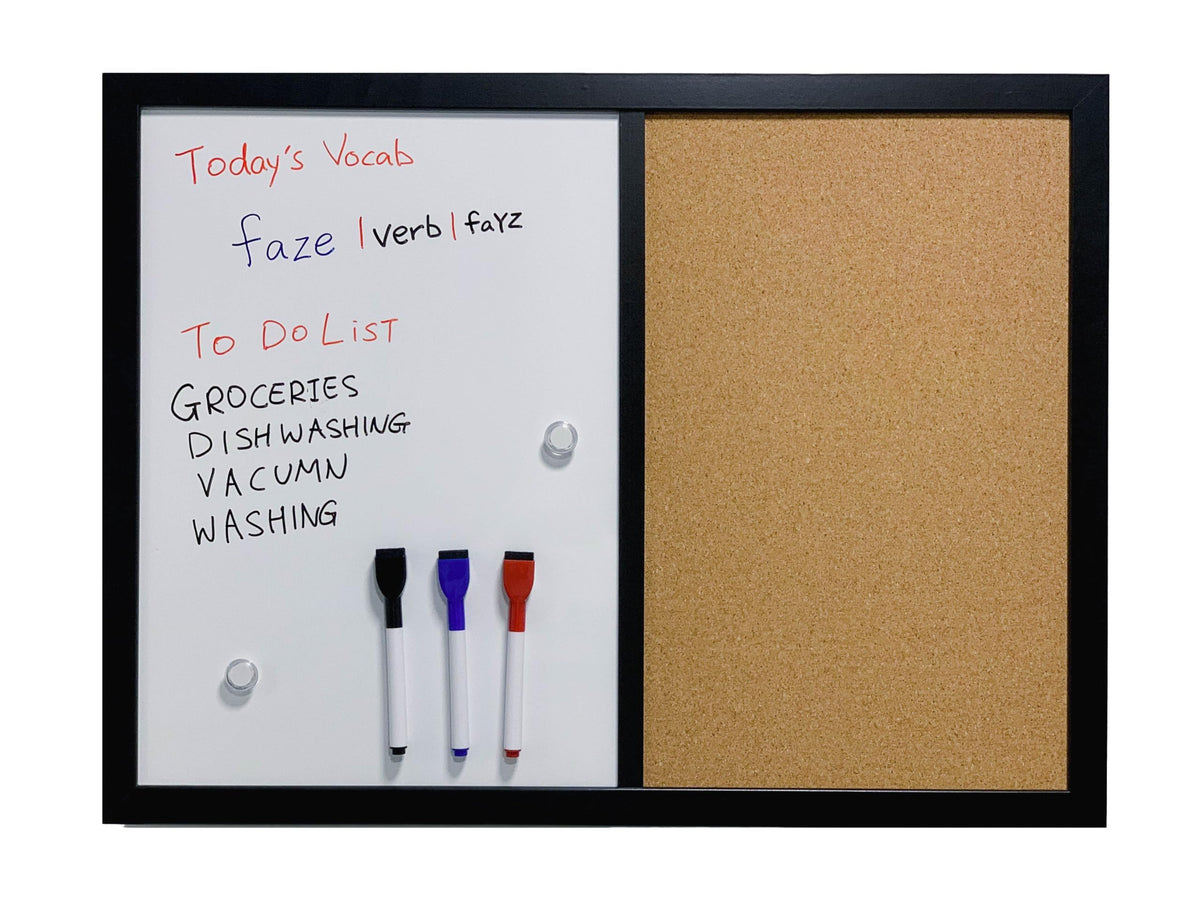 Today's Vocab
faze | verb | fayz
To Do List
GROCERIES
DISHWASHING
VACUMN
WASHING